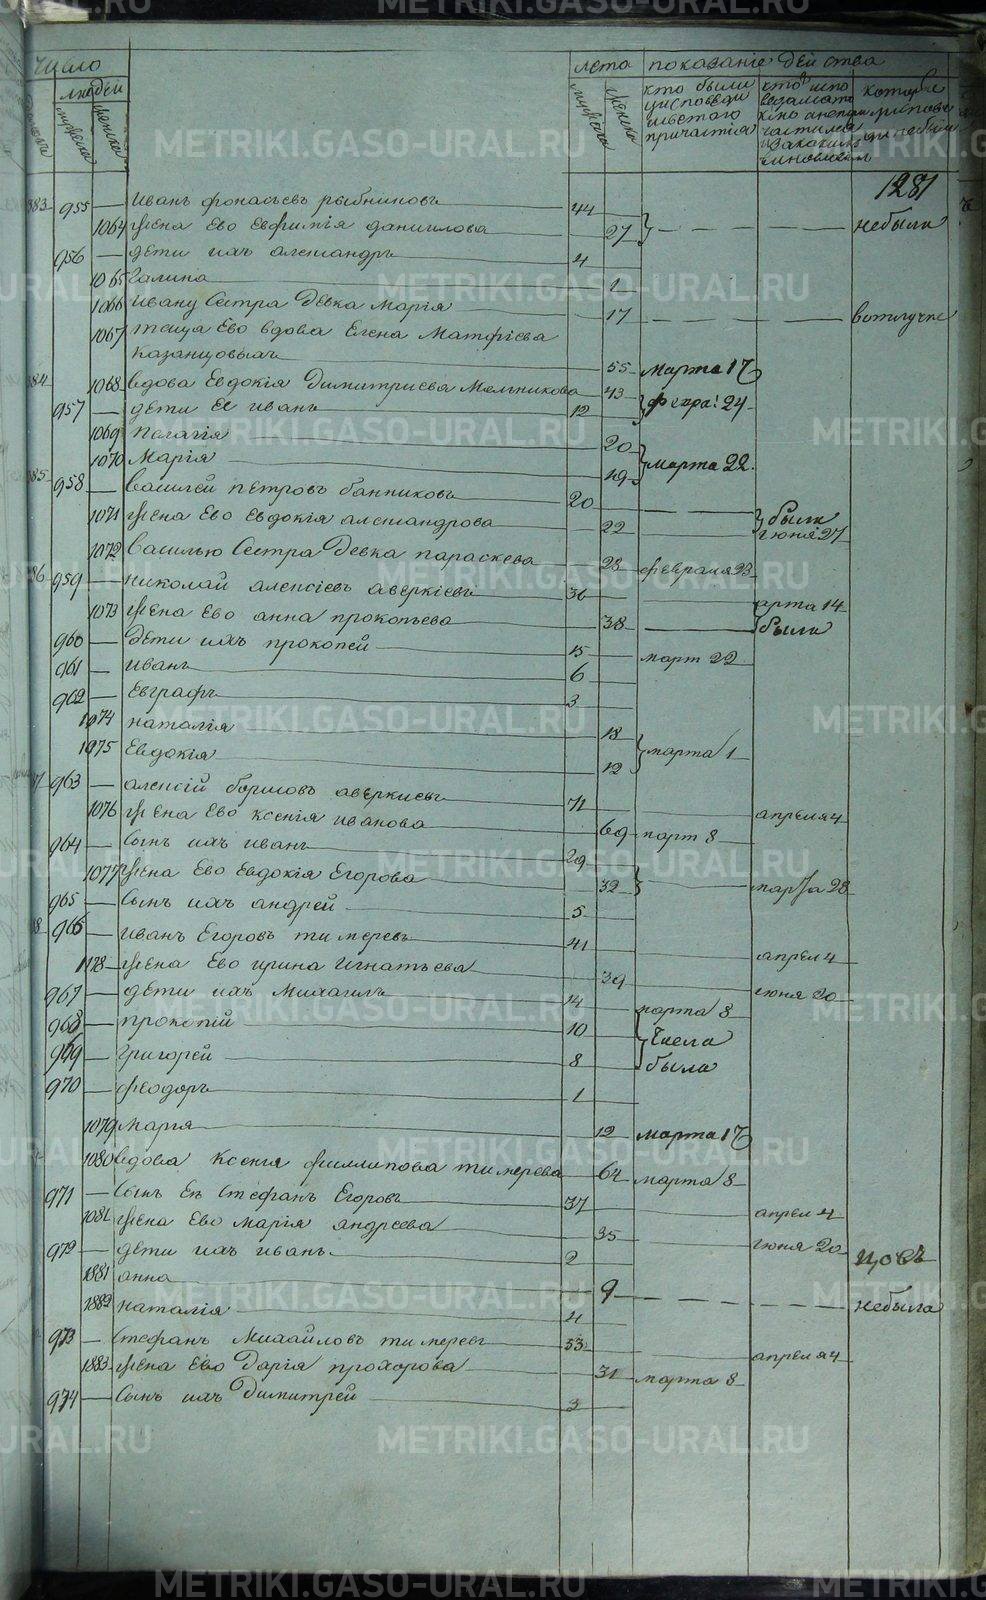 число
людей
мужеска
женска
лета
мужска
женска
показаніе действа
кто были
уисповеди
исвятого
причастія
1281
383 955 — Иванъ фонасьевъ рыбниковъ 44
1064 жена Ево Евфимія данилова 27 — — — — небыли
956 — дети ихъ александръ 4
1065 Галина 1
1066 Ивану Сестра Девка Марія 17 — — — — вотлучке
1067 теща Ево вдова Елена Матфіева
казанцовыхъ 55 марта 17
384 1068 вдова Евдокія Димитриева Мельникова 43
957 — дети Ее Иванъ 12 февра: 24
1069 Пелагія 20
1070 Марія 19 марта 22
385 958 — Василей петровъ банниковъ 20
1071 жена Ево Евдокія александрова 22 были
іюня 27
1072 Василью Сестра Девка параскева 23 февраля 23
386 959 — николай алексіевъ аверкіевъ 36
арта 14
1073 жена Ево анна прокопьева 38 были
960 — дети ихъ прокопей 15 март 22
961 — Иванъ 6
962 — Евграфъ 3
1074 наталія 18
1075 Евдокія 12 марта 1
963 — алексій борисовъ аверкиевъ 71 апреля 4
1076 жена Ево ксенія иванова 69 март 8
964 — Сынъ ихъ иванъ 29
1077 жена Ево Евдокія Егорова 32 марта 28
965 — Сынъ ихъ андрей 5
966 — Иванъ Егоровъ тимеревъ 41 апрел 4
1178 — жена Ево ирина Игнатьева 39 іюня 20
967 — дети ихъ Михаилъ 14 марта 8
968 — прокопій 10 Числа
969 — григорей 8 была
970 — феодоръ 1
1079 Марія 12 марта 17
1080 вдова Ксенія филипова тимерева 64 марта 8
971 — Сынъ Ея Стефанъ Егоровъ 37 апрел 4
1081 жена Ево Марія андреева 35 іюня 20
972 — дети ихъ иванъ 2
1881 анна 9 — — — — небыла
1882 наталія 4
973 — Стефанъ Михайловъ тимеревъ 53 апреля 4
1883 жена Ево Дарія прохорова 31 марта 8
974 — Сынъ ихъ Димитрей 3